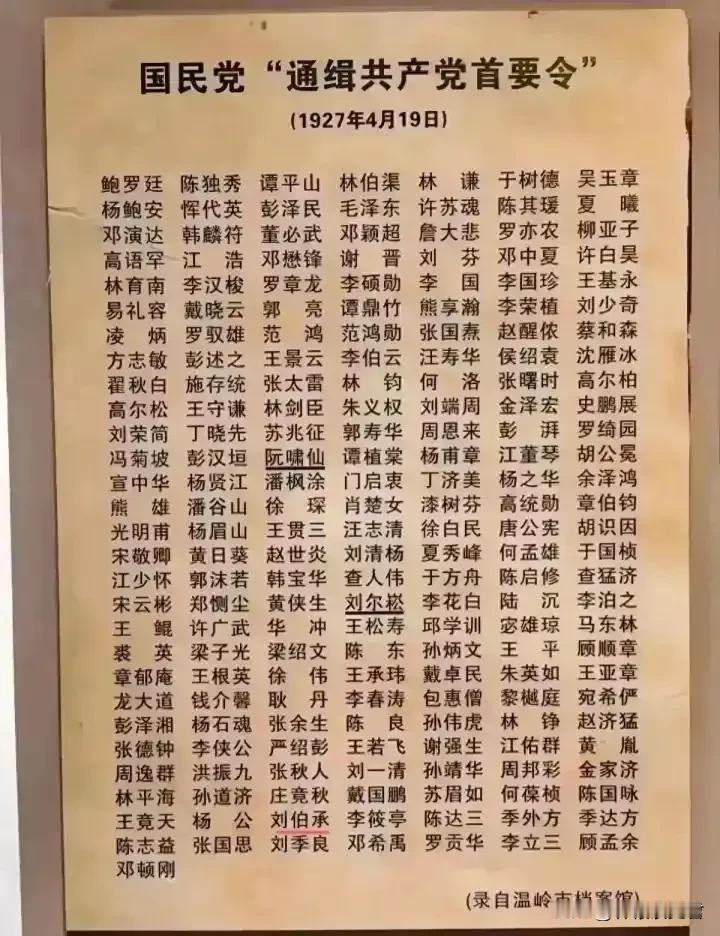 国民党“通缉共产党首要令”
(1927年4月19日)
鲍罗廷 陈独秀 谭平山 林伯渠 林 谦 于树德 吴玉章
杨鲍安 恽代英 彭泽民 毛泽东 许苏魂 陈其瑗 夏 曦
邓演达 韩麟符 董必武 邓颖超 詹大悲 罗亦农 柳亚子
高语罕 江 浩 邓懋锋 谢 晋 刘 芬 邓中夏 许白昊
林育南 李汉梭 罗章龙 李硕勋 李 国 李国珍 王基永
易礼容 戴晓云 郭 亮 谭鼎竹 熊享瀚 李荣植 刘少奇
凌 炳 罗驭雄 范 鸿 范鸿勋 张国焘 赵醒侬 蔡和森
方志敏 彭述之 王景云 李伯云 汪寿华 侯绍袁 沈雁冰
翟秋白 施存统 张太雷 林 钧 何 洛 张曙时 高尔柏
高尔松 王守谦 林剑臣 朱义权 刘端周 金泽宏 史鹏展
刘荣简 丁晓先 苏兆征 郭寿华 周恩来 彭 湃 罗绮园
冯菊坡 彭汉垣 阮啸仙 谭植棠 杨甫章 江董琴 胡公冕
宣中华 杨贤江 潘枫涂 门启衷 丁济美 杨之华 余泽鸿
熊 雄 潘谷山 徐 琛 肖楚女 漆树芬 高统勋 章伯钧
光明甫 杨眉山 王贯三 汪志清 徐白民 唐公宪 胡识因
宋敬卿 黄日葵 赵世炎 刘清杨 夏秀峰 何孟雄 于国桢
江少怀 郭沫若 韩宝华 查人伟 于方舟 陈启修 查猛济
宋云彬 郑恻尘 黄侠生 刘尔崧 李花白 陆 沉 李泊之
王 鲲 许广武 华 冲 王松寿 邱学训 宓雄琼 马东林
裘 英 梁子光 梁绍文 陈 东 孙炳文 王 平 顾顺章
章郁庵 王根英 徐 伟 王承玮 戴卓民 朱英如 王亚章
龙大道 钱介馨 耿 丹 李春涛 包惠僧 黎樾庭 宛希俨
彭泽湘 杨石魂 张余生 陈 良 孙伟虎 林 铮 赵济猛
张德钟 李侠公 严绍彭 王若飞 谢强生 江佑群 黄 胤
周逸群 洪振九 张秋人 刘一清 孙靖华 周邦彩 金家济
林平海 孙道济 庄竟秋 戴国鹏 苏眉如 何葆桢 陈国咏
王竟天 杨 公 刘伯承 李筱亭 陈达三 季外方 季达方
陈志益 张国思 刘季良 邓希禹 罗贡华 李立三 顾孟余
邓顿刚
(录自温岭市档案馆)